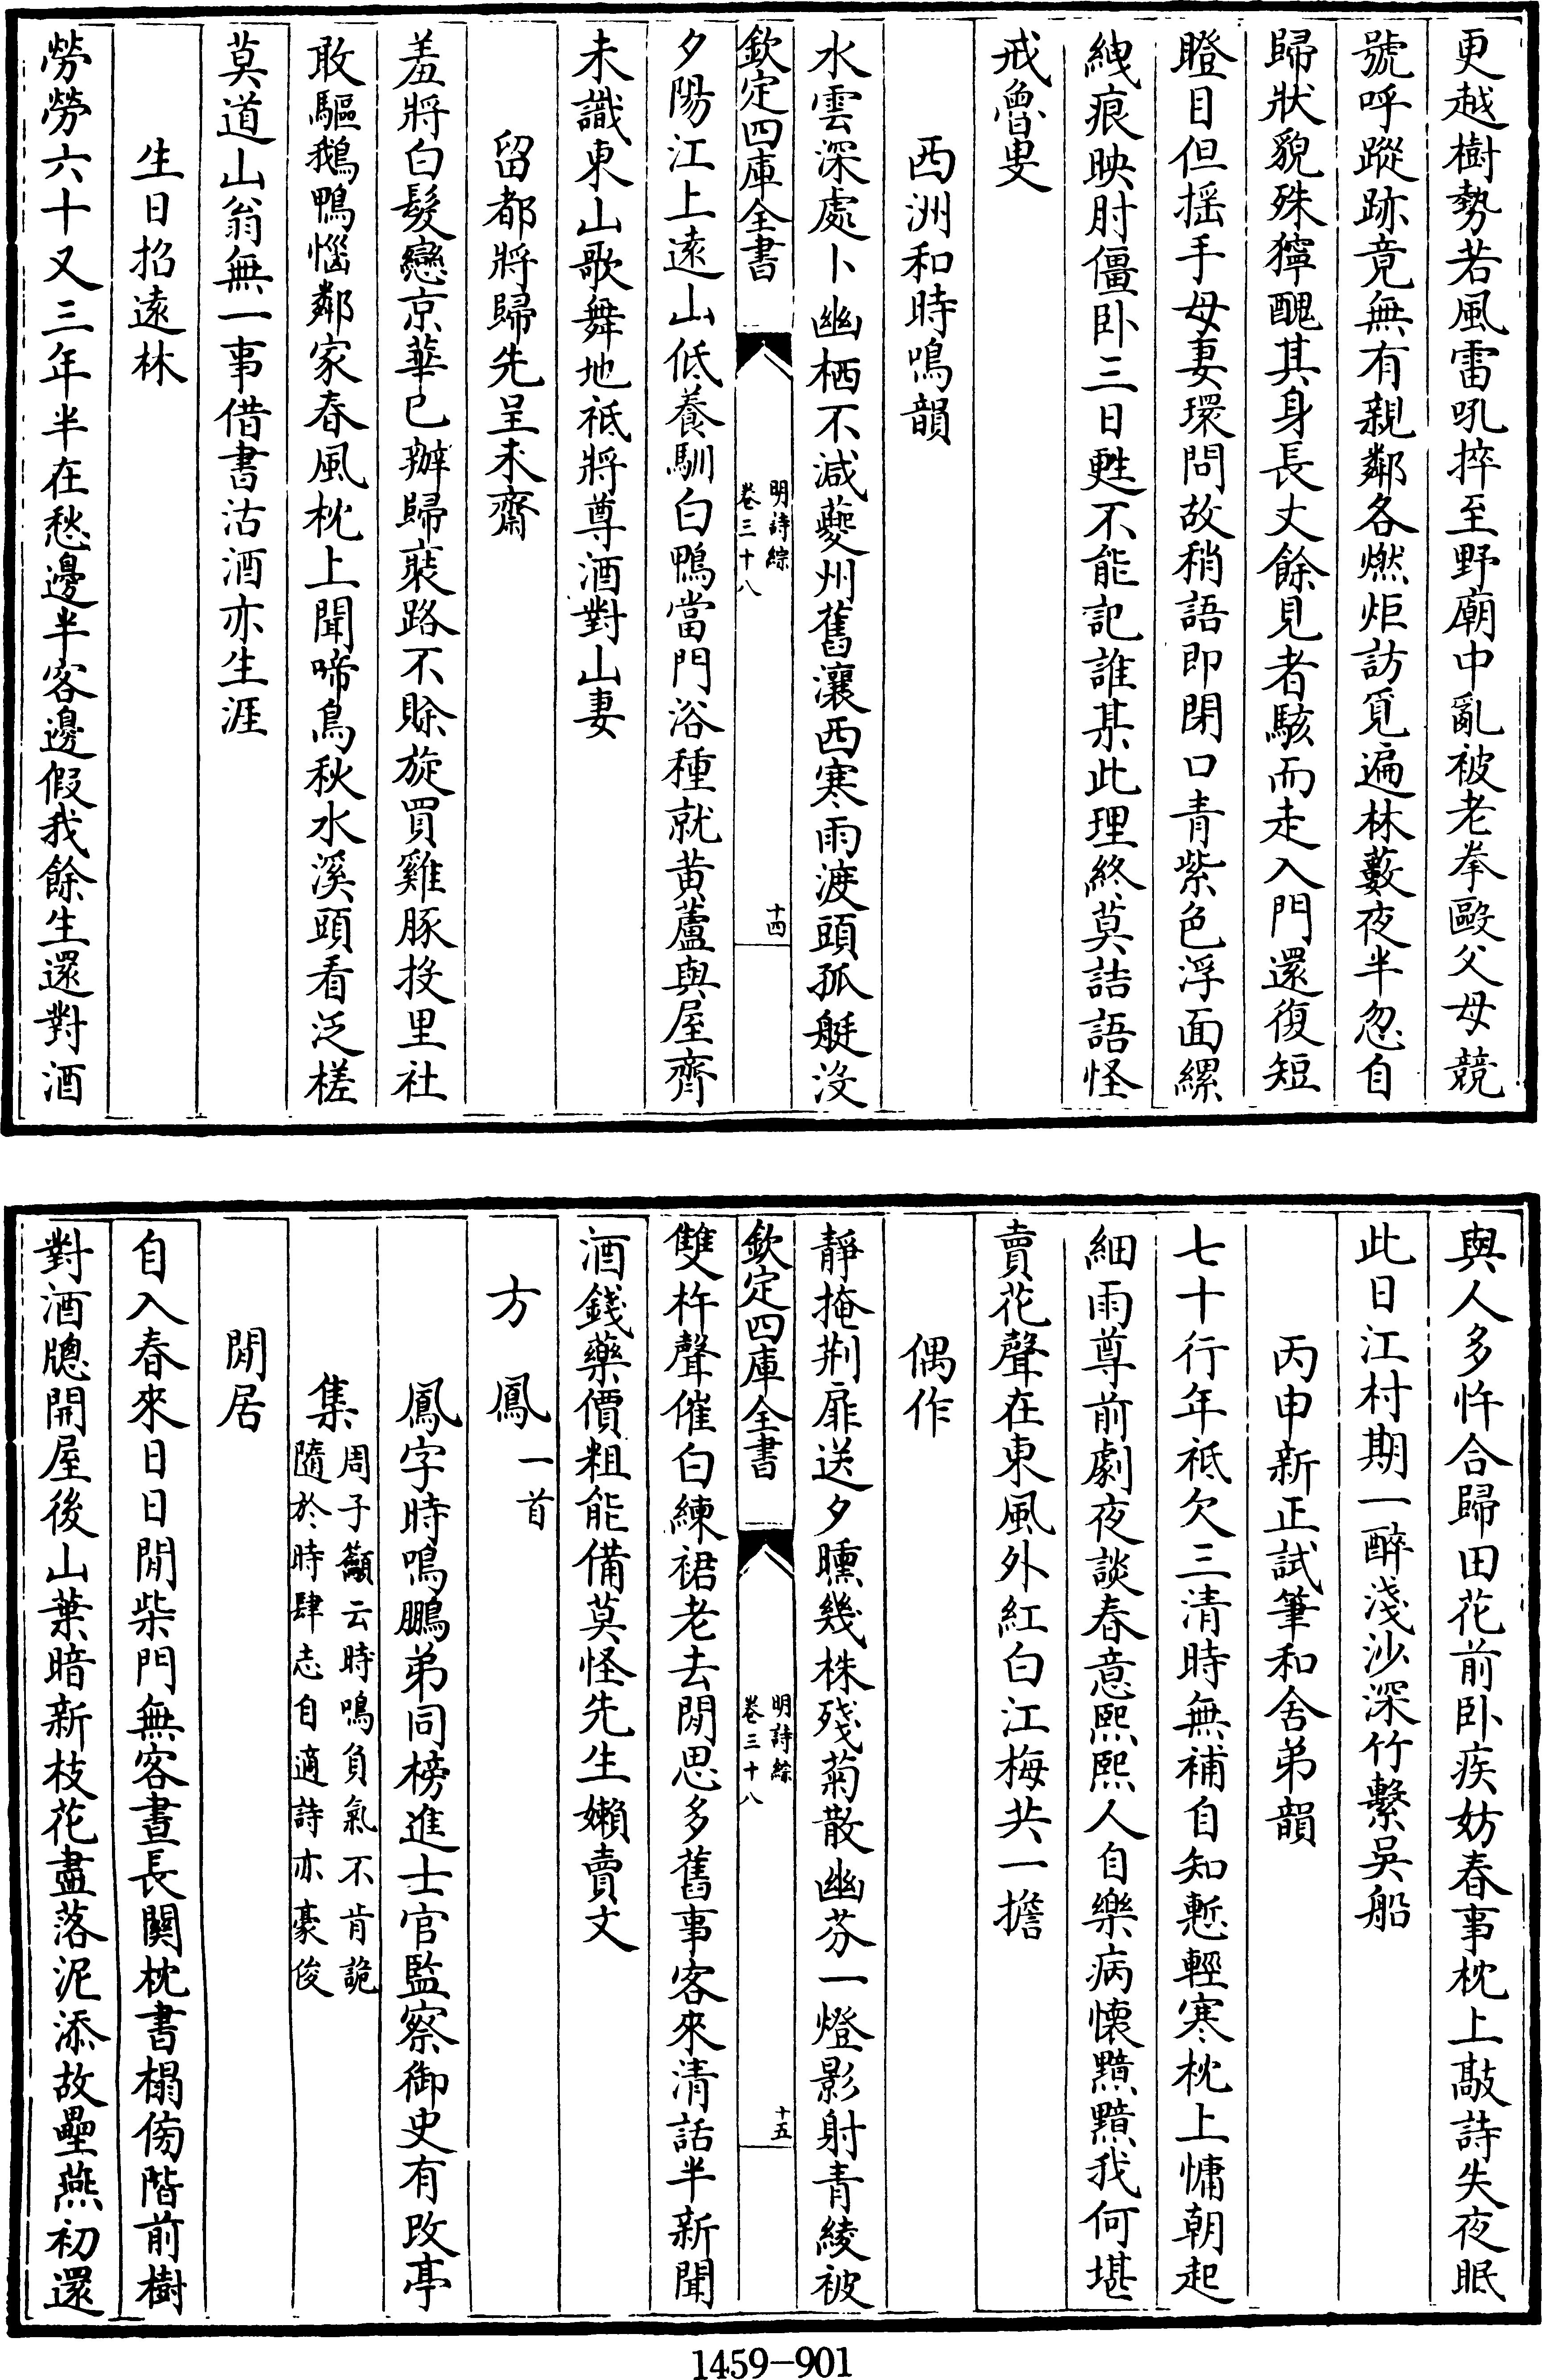 更越樹勢若風雷吼捽至野廟中亂被老拳毆父母競
號呼蹤跡竟無有親鄰各燃炬訪覓遍林藪夜半忽自
歸狀貌殊獰醜其身長丈餘見者駭而走入門還復短
瞪目但摇手母妻環問故稍語即閉口青紫色浮面縲
絏痕映肘僵卧三日甦不能記誰某此理終莫詰語怪
戒魯叟
西洲和時鳴韻
水雲深處卜幽栖不減夔州舊瀼西寒雨渡頭孤艇没
欽定四庫全書
明詩綜
卷三十八
十四
夕陽江上遠山低養馴白鴨當門浴種就黄蘆與屋齊
未識東山歌舞地祗將尊酒對山妻
留都將歸先呈未齋
羞將白髮戀京華已辦歸裝路不賒旋買雞豚投里社
敢驅鵝鴨惱鄰家春風枕上聞啼鳥秋水溪頭看泛槎
莫道山翁無一事借書沽酒亦生涯
生日招遠林
勞勞六十又三年半在愁邊半客邊假我餘生還對酒
與人多忤合歸田花前卧疾妨春事枕上敲詩失夜眠
此日江村期一醉淺沙深竹繫吳船
丙申新正試筆和舍弟韻
七十行年祗欠三清時無補自知慙輕寒枕上慵朝起
細雨尊前劇夜談春意熙熙人自樂病懷黯黯我何堪
賣花聲在東風外紅白江梅共一擔
偶作
靜掩荆扉送夕曛幾株殘菊散幽芬一燈影射青綾被
欽定四庫全書
明詩綜
卷三十八
十五
雙杵聲催白練裙老去閒思多舊事客來清話半新聞
酒錢藥價粗能備莫怪先生嬾賣文
方鳳一首
鳳字時鳴鵬弟同榜進士官監察御史有改亭
集周子籲云時鳴負氣不肯詭
隨於時肆志自適詩亦豪俊
閒居
自入春來日日閒柴門無客晝長關枕書榻傍階前樹
對酒牕開屋後山葉暗新枝花盡落泥添故壘燕初還
1459-901